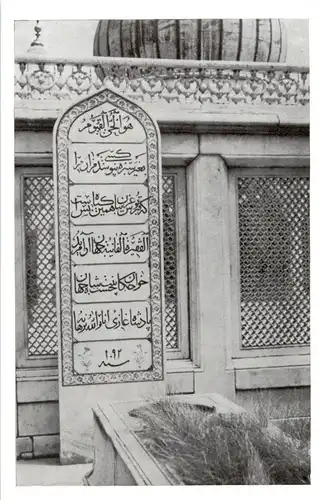 هو الحی القیوم
بغیر سبزه نپوشد کسی مزار مرا
که قبر پوش غریبان همین گیاه بس است
الفقیرة الفانیة جهان آرا مرید
خواجکان چشت بنت شاهجهان
پادشاه غازی انار الله برهانه
سنه ۱۰۹۲